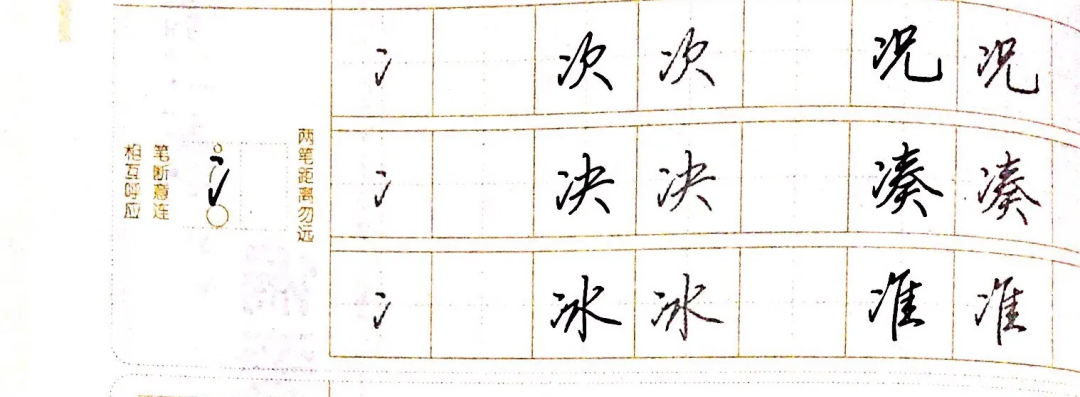 笔断意连
相互呼应
冫
两笔距离勿远
冫 次 次 况 况
冫 决 决 凑 凑
冫 冰 冰 准 准